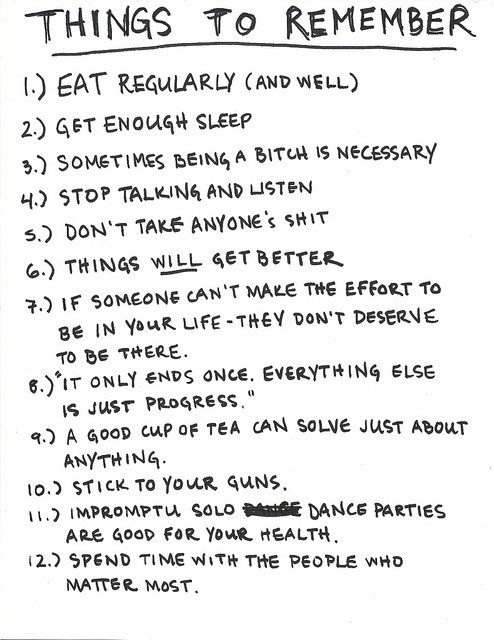 THINGS TO REMEMBER
1.) EAT REGULARLY (AND WELL)
2.) GET ENOUGH SLEEP
3.) SOMETIMES BEING A BITCH IS NECESSARY
4.) STOP TALKING AND LISTEN
5.) DON'T TAKE ANYONE'S SHIT
6.) THINGS WILL GET BETTER
7.) IF SOMEONE CAN'T MAKE THE EFFORT TO
BE IN YOUR LIFE - THEY DON'T DESERVE
TO BE THERE.
8.) "IT ONLY ENDS ONCE. EVERYTHING ELSE
IS JUST PROGRESS."
9.) A GOOD CUP OF TEA CAN SOLVE JUST ABOUT
ANYTHING.
10.) STICK TO YOUR GUNS.
11.) IMPROMPTU SOLO DANCE PARTIES
ARE GOOD FOR YOUR HEALTH.
12.) SPEND TIME WITH THE PEOPLE WHO
MATTER MOST.